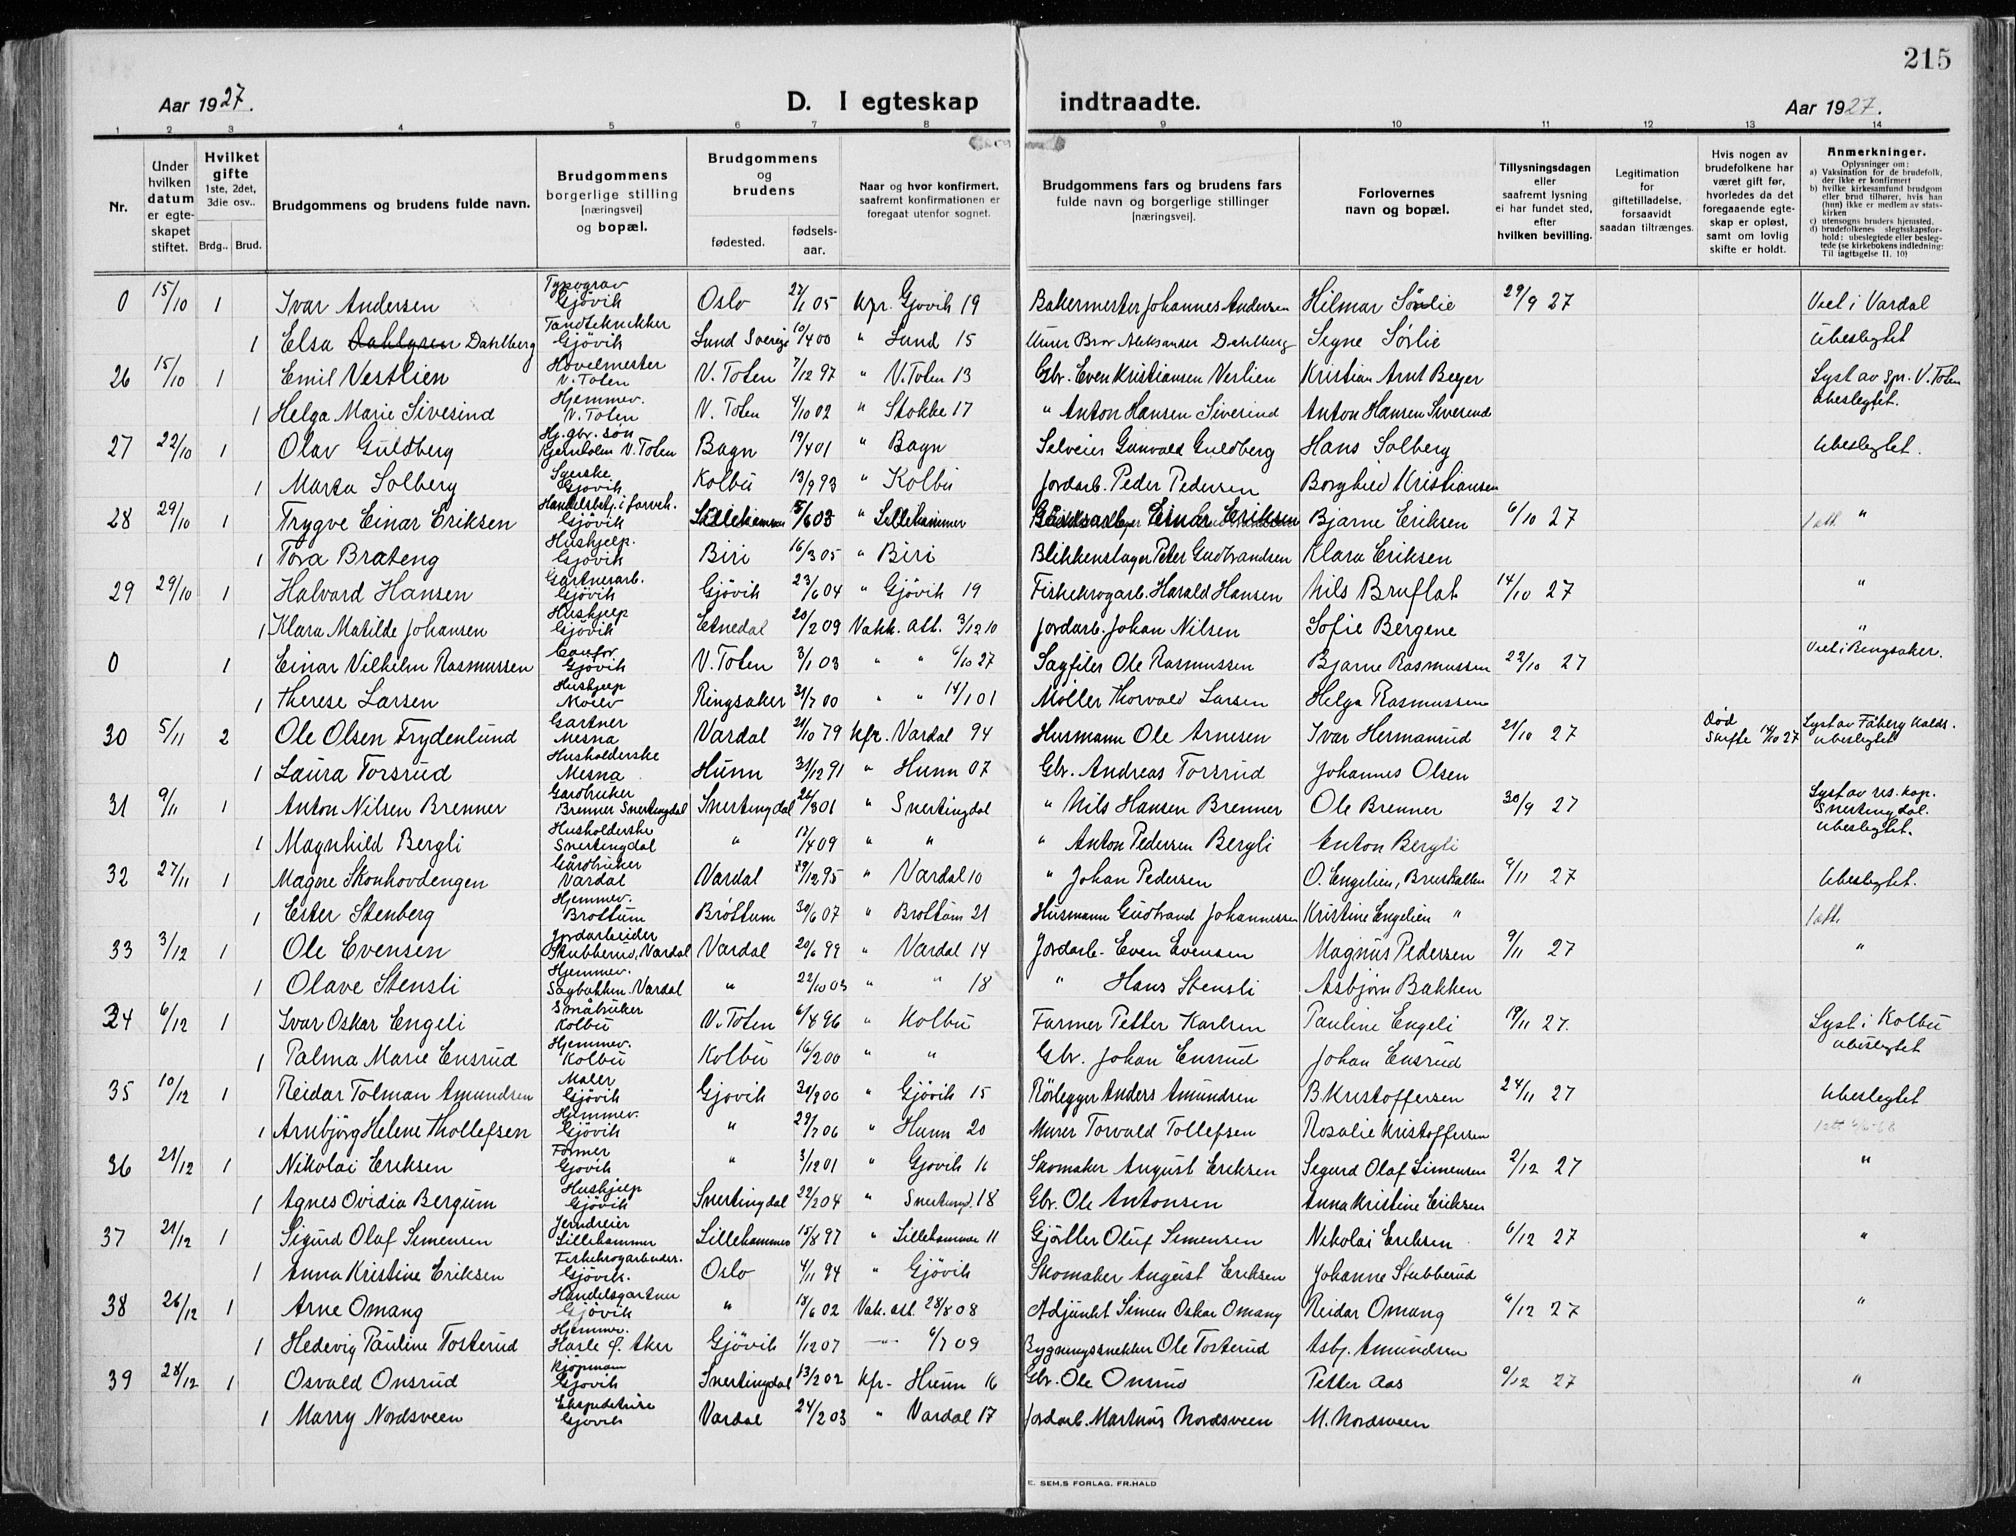 215
Aar 1927.
D. I egteskap indtraadte.
Aar 1927.
1 2 3 4 5 6 7 8 9 10 11 12 13 14
Nr.
Under hvilken datum er egteskapet stiftet.
Hvilket gifte 1ste, 2det, 3die osv..
Brdg.. Brud.
Brudgommens og brudens fulde navn.
Brudgommens borgerlige stilling [næringsvei] og bopæl.
Brudgommens og brudens
fødested. fødsels-aar.
Naar og hvor konfirmert, saafremt konfirmationen er foregaat utenfor sognet.
Brudgommens fars og brudens fars fulde navn og borgerlige stillinger [næringsvei].
Forlovernes navn og bopæl.
Tillysningsdagen eller saafremt lysning ei har fundet sted, efter hvilken bevilling.
Legitimation for giftetilladelse, forsaavidt saadan tiltrænges.
Hvis nogen av brudefolkene har været gift før, hvorledes da det foregaaende egteskap er opløst, samt om lovlig skifte er holdt.
Anmerkninger.
Oplysninger om:
a) Vaksination for de brudefolk, der ikke er konfirmert
b) hvilke kirkesamfund brudgom eller brud tilhører, hvis han (hun) ikke er medlem av statskirken
c) utensogns bruders hjemsted.
d) brudefolkenes slegtsskapsforhold: ubeslegtede eller beslegtede (se kirkebokens indledning: Til iagttagelse II, 10)
0 15/10 1 Ivar Andersen Typograv Gjövik Oslo 05 Kpr. Gjøvik 19 Bakermester Johannes Andersen Hilmar Sørlie 29/9 27 Viet i Vardal
1 Elsa Dahlgren Dahlberg Tandteknikker Gjövik Lund Sverige 10/4 00 " Lund 15 Murer Bror Aleksander Dahlberg Signe Sørlie Ubeslegtet
26 15/10 1 Emil Vestlien Hovelmester V. Toten V. Toten 7/12 97 " V. Toten 13 Gbr. Even Kristiansen Verlien Kristian Arnt Beyer Lyst av spr. V. Toten
1 Helga Marie Sivesind Hjemmev. V. Toten V. Toten 4/10 02 " Stokke 17 " Anton Hansen Sivesind Anton Hansen Sivesind Ubeslegtet.
27 22/10 1 Olav Guldberg Hj. gbr. søn V. Toten Bagn 19/4 01 " Bagn Selveier Gunvald Guldberg Hans Solberg Ubeslegtet.
1 Marta Solberg Syerske Gjövik Kolbu 13/9 93 " Kolbu Jordarb. Peder Pedersen Borghild Kristiansen
28 29/10 1 Trygve Einar Eriksen Gjövik Lillehammer 5/6 03 " Lillehammer Einar Eriksen Bjarne Eriksen 6/10 27 1 att. "
1 Tora Brateng Hushjelp. Gjövik Biri 16/3 05 " Biri Blikkenslager Peter Gudbrandsen Klara Eriksen
29 29/10 1 Halvard Hansen Gartnerarb. Gjövik Gjövik 23/6 04 " Gjövik 19 Fiskekrogarb. Harald Hansen Nils Bruflat 14/10 27 "
1 Klara Matilde Johansen Hushjelp Gjövik Etnedal 20/2 09 Vakk. att. 3/12 10 Jordarb. Johan Nilsen Sofie Bergene "
0 1 Einar Vilhelm Rasmussen Gjövik V. Toten 3/1 03 " " 6/10 27 Sagfiler Ole Rasmussen Bjarne Rasmussen 22/10 27 Viet i Ringsaker.
1 Therese Larsen Hushjelp Moelv Ringsaker 31/7 00 " " 14/1 01 Møller Thorvald Larsen Helga Rasmussen
30 5/11 2 Ole Olsen Frydenlund Gartner Mesna Vardal 21/10 79 Kfr. Vardal 94 Husmann Ole Arnesen Ivar Hermanrud 21/10 27 Död Skifte 14/10 27 Lyst av Fåberg Kalds. Ubeslegtet
1 Laura Torsrud Husholderske Mesna Hunn 31/12 91 " Hunn 07 Gbr. Andreas Torsrud Johannes Olsen
31 9/11 1 Anton Nilsen Brenner Gardbruker Brenner Snertingdal Snertingdal 26/3 01 " Snertingdal " Nils Hansen Brenner Ole Brenner 30/9 27 Lyst av res. kap. Snertingdal. Ubeslegtet.
1 Magnhild Bergli Husholderske Snertingdal " 17/4 09 " " " Anton Pedersen Bergli Anton Bergli
32 27/11 1 Magne Skonhovdengen Gårdbruker Vardal Vardal 29/12 95 " Vardal 10 " Johan Pedersen O. Engelien, Bruskallen 6/11 27 Ubeslegtet.
1 Ester Stenberg Hjemmev. Brottum Bröttum 30/6 07 " Brottum 21 Husmann Gudbrand Johannessen Kristine Engelien " 1 att.
33 3/12 1 Ole Evensen Jordarbeider Stubberud, Vardal Vardal 20/6 99 " Vardal 14 Jordarb. Even Evensen Magnus Pedersen 9/11 27 "
1 Olave Stensli Hjemmev. Sagbakken. Vardal " 22/10 03 " " 18 " Hans Stensli Asbjørn Bakken
34 6/12 1 Ivar Oskar Engeli Småbruker Kolbu V. Toten 6/8 96 " Kolbu Farmer Petter Karlsen Pauline Engeli 19/11 27. Lyst i Kolbu
1 Palma Marie Ensrud Hjemmev. Kolbu Kolbu 16/2 00 " " Gbr. Johan Ensrud Johan Ensrud Ubeslegtet
35 10/12 1 Reidar Tolman Amundsen Maler Gjövik Gjøvik 31/3 00 " Gjövik 15 Rörlegger Anders Amundsen B Kristoffersen 24/11 27 Ubeslegtet
1 Arnbjörg Helene Thollefsen Hjemmev. Gjövik " 29/7 06 " Hunn 20 Murer Torvald Tollefsen Rosalie Kristoffersen
36 21/12 1 Nikolai Eriksen Former Gjövik " 3/12 01 " Gjøvik 16 Skomaker August Eriksen Segurd Olaf Simensen 2/12 27 "
1 Agnes Ovidia Bergum Hushjelp Gjövik Snertingdal 22/2 04 " Snertingd. 18 Gbr. Ole Antonsen Anna Kristine Eriksen
37 21/12 1 Sigurd Olaf Simensen Jerndreier Lillehammer Lillehammer 15/8 97 " Lillehammer 11 Gjørtler Oluf Simensen Nikolai Eriksen 6/12 27 "
1 Anna Kristine Eriksen Fiskekrogarbeider. Gjövik. Oslo 4/11 94 " Gjövik Skomaker August Eriksen Johanne Stubberud
38 26/12 1 Arne Omang Handelsgartner Gjövik " 18/6 02 Vak. att. 28/8 08 Adjunkt Simen Oskar Omang Reidar Omang 6/12 27 "
1 Hedevig Pauline Tosterud Hjemmev. Hasle Ø. Aker Gjövik 1/12 07 — " — 6/7 09 Bygningssnekker Ole Tosterud Asbj. Amundsen
39 28/12 1 Osvald Onsrud Kjøpmann Gjøvik Snertingdal 13/2 02 Kfr. Hunn 16 Gbr. Ole Onsrud Petter Aas 6/12 27 "
1 Marry Nordsveen Ekspeditrise Gjövik Vardal 24/2 03 " Vardal 17 Jordarb. Martnus Nordsveen M. Nordsveen
E. SEM.S FORLAG. FR.HALD